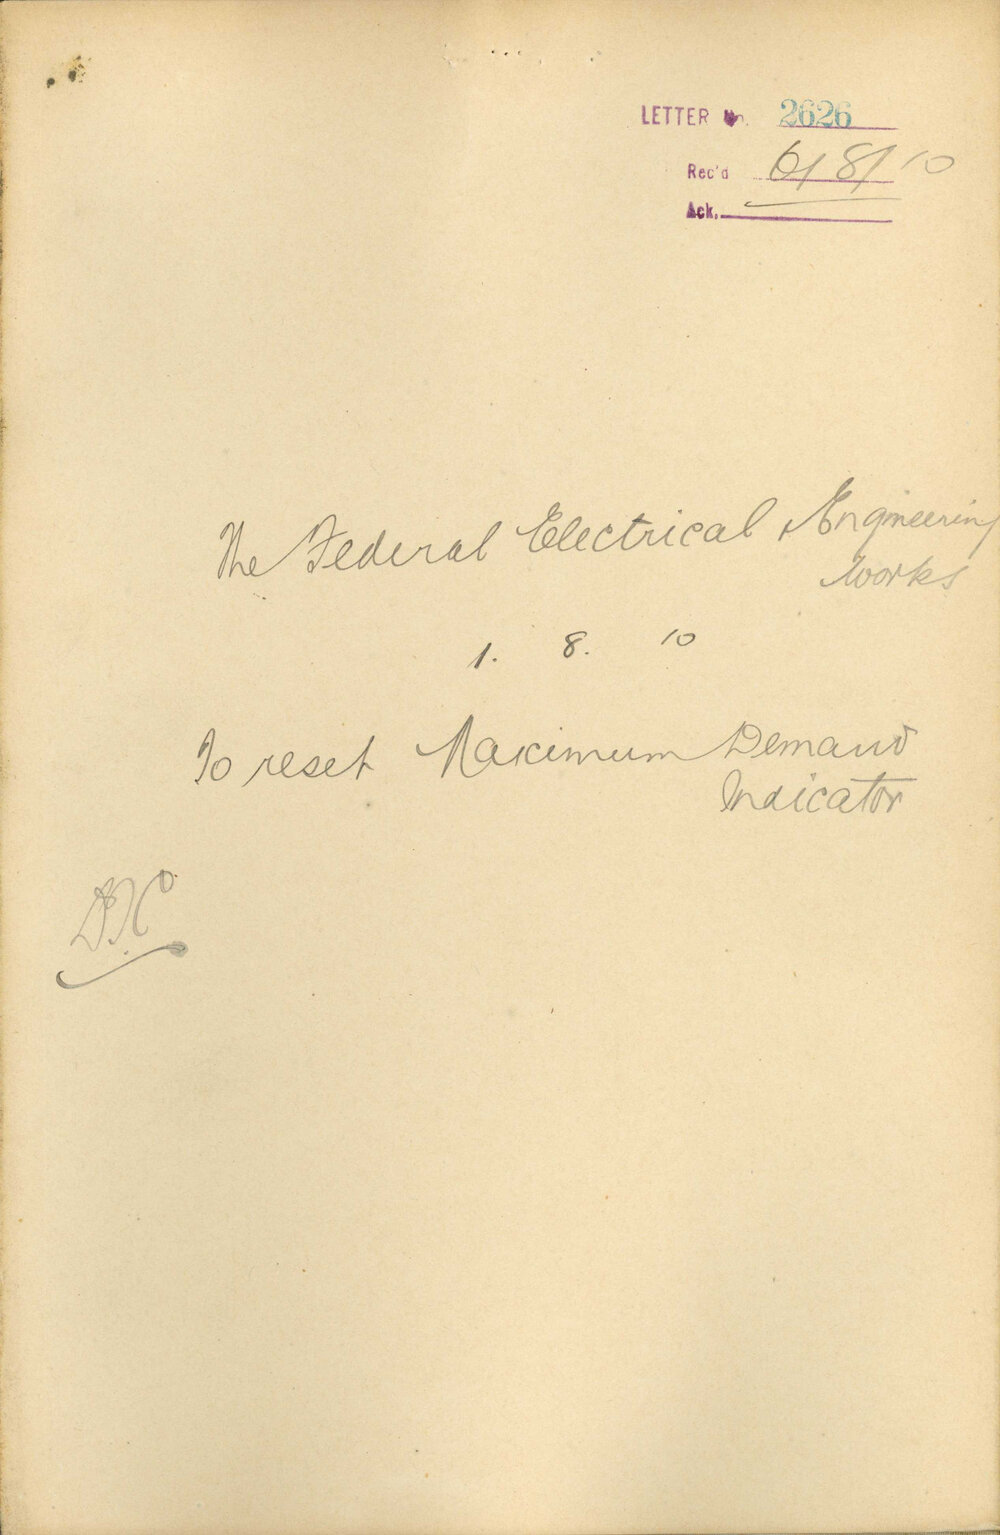 LETTER No. 2626
Rec'd 6/8/10
Ack.
The Federal Electrical & Engineering
Works
1. 8. 10
To reset Maximum Demand
Indicator